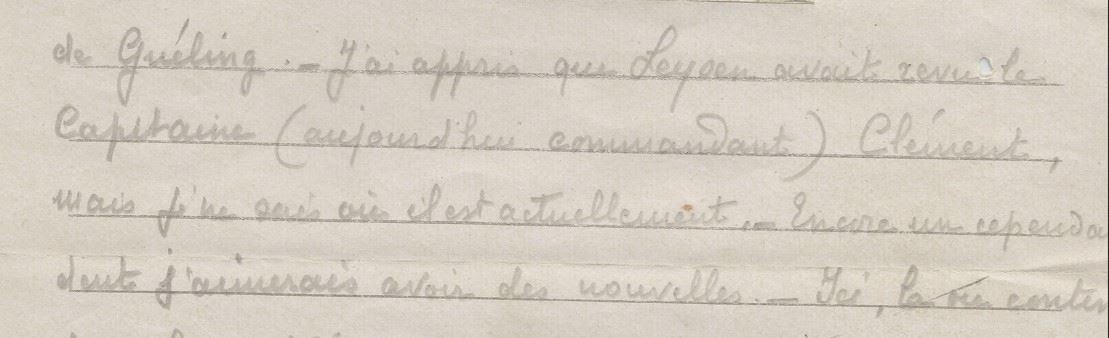 de Guéling. - J'ai appris que Seysen avait revu le
Capitaine (aujourd'hui commandant) Clément,
mais je ne sais où il est actuellement. - Encore un cependa
dont j'aimerais avoir des nouvelles. - Ici, la vie contin